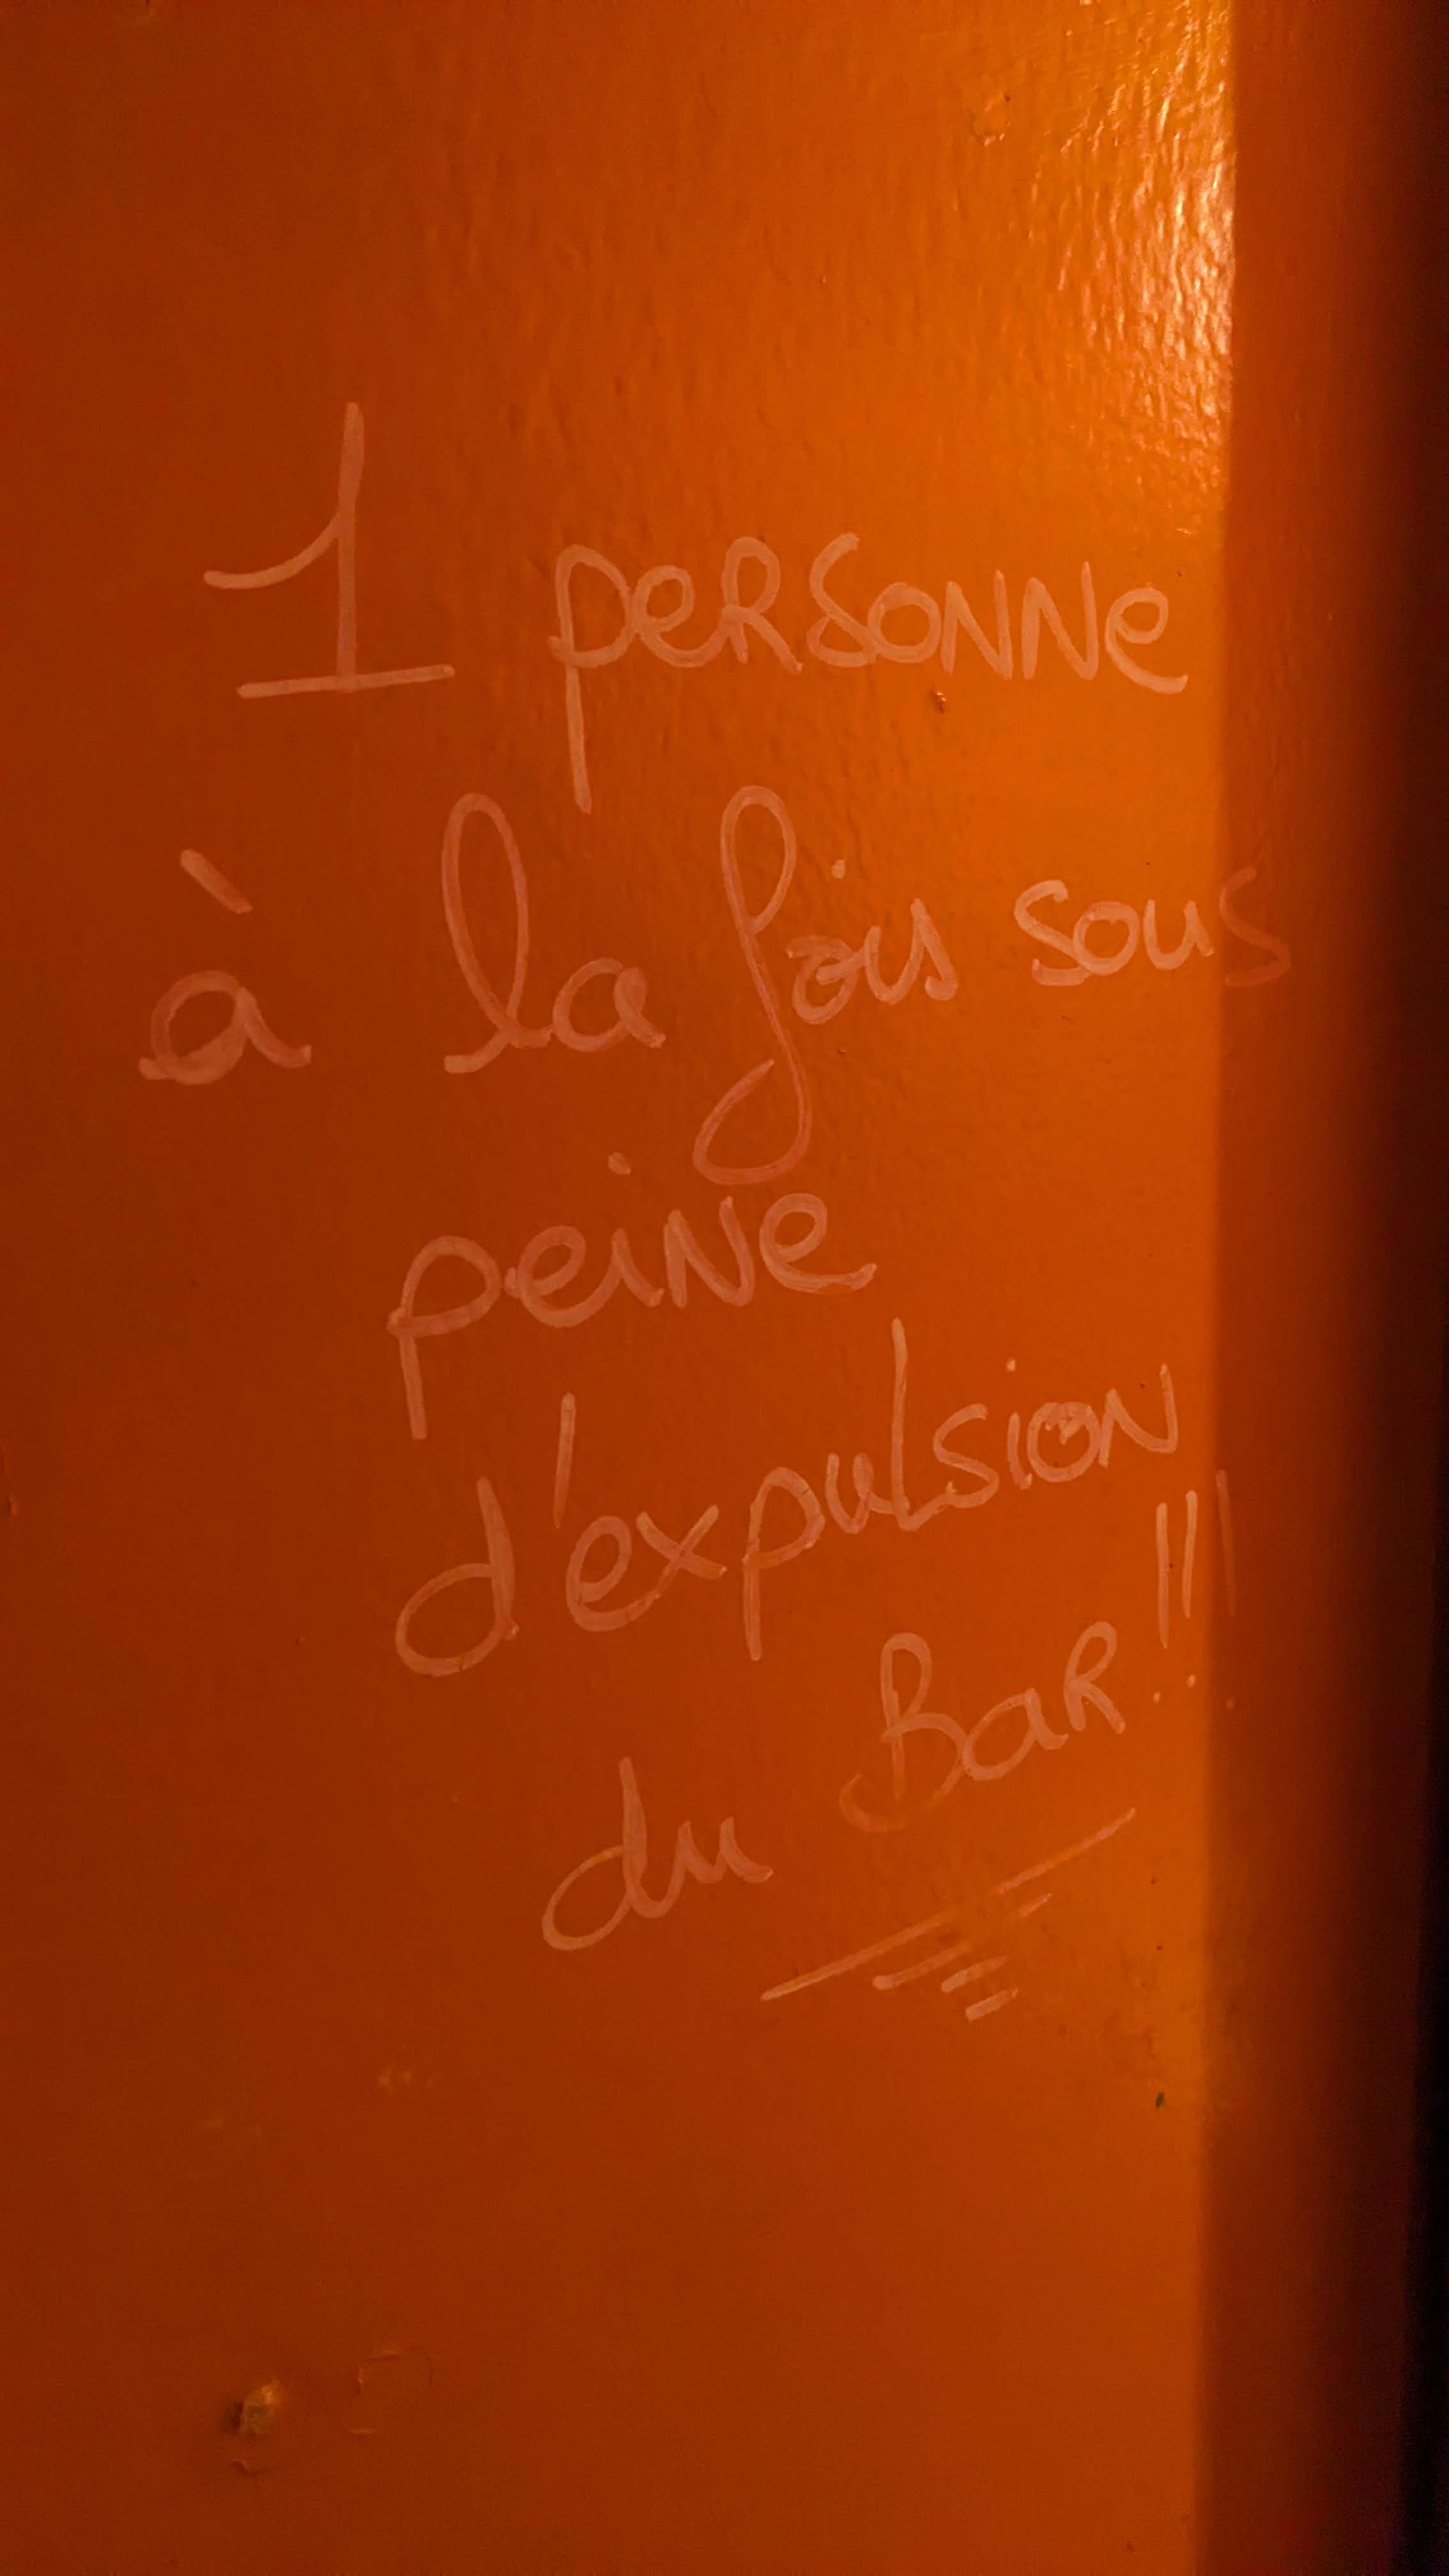 1 personne
à la fois sous
peine
d'expulsion
du Bar!!!